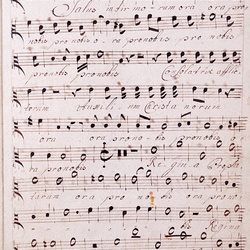 Salus infirmorum ora ora pro
nobis pro nobis ora pro nobis pro nobis
pro nobis pro nobis Consolatrix afflic
torum Auxilium Christianorum
ora ora pro nobis ora
pro nobis Regina
tarum ora pro nobis ora pro nobis
Regina